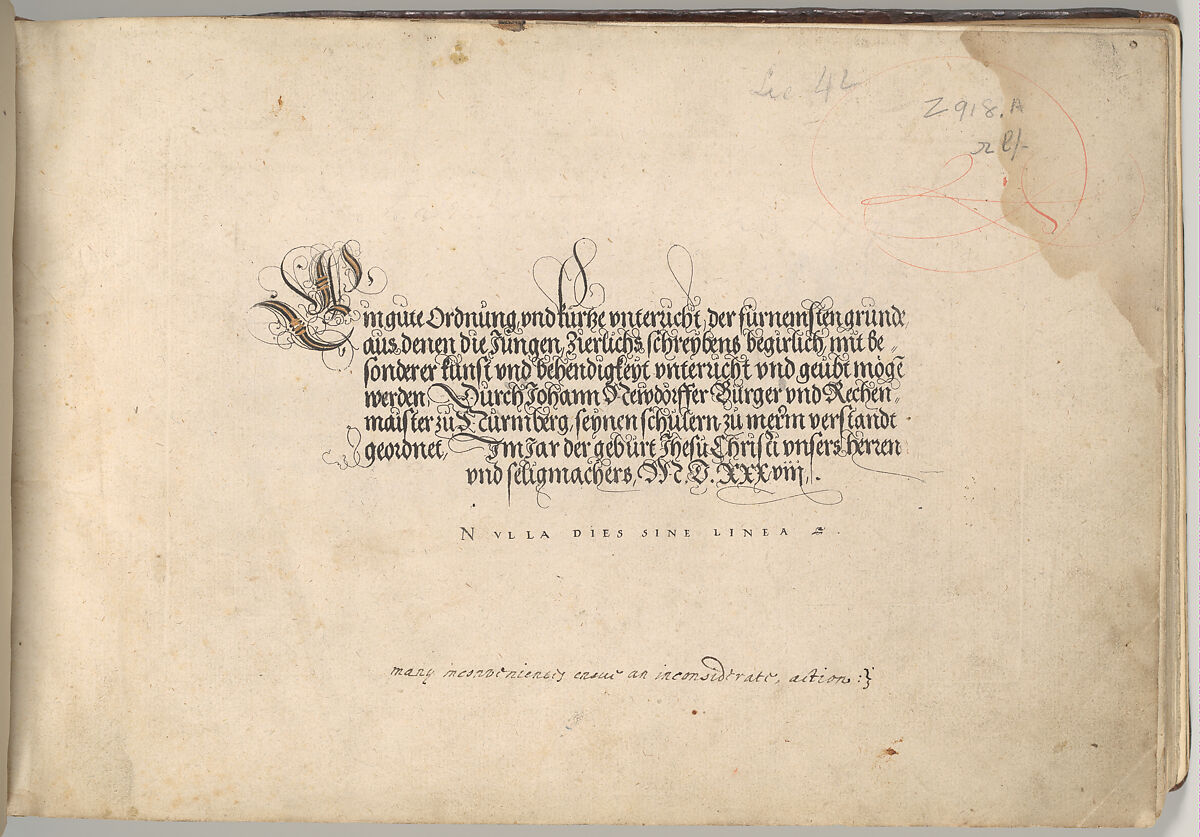 42
Z 918. A
Ein gute Ordnung, vnd kurtze vnterricht, der furnemsten grunde,
aus denen die Jungen, Zierlichs schreybens begirlich, mit be-
sonderer kunst vnd behendigkeyt vnterricht vnd geubt mögē
werden, Durch Johann Newdorffer Burger vnd Rechen-
maister zu Nurmberg, seynen schulern zu merm verstandt
geordnet, Im Jar der geburt Jhesu Christi vnsers herren
vnd seligmachers, M. D. XXXviij.
NVLLA DIES SINE LINEA
many inconveniences ensue an inconsiderate, action :}